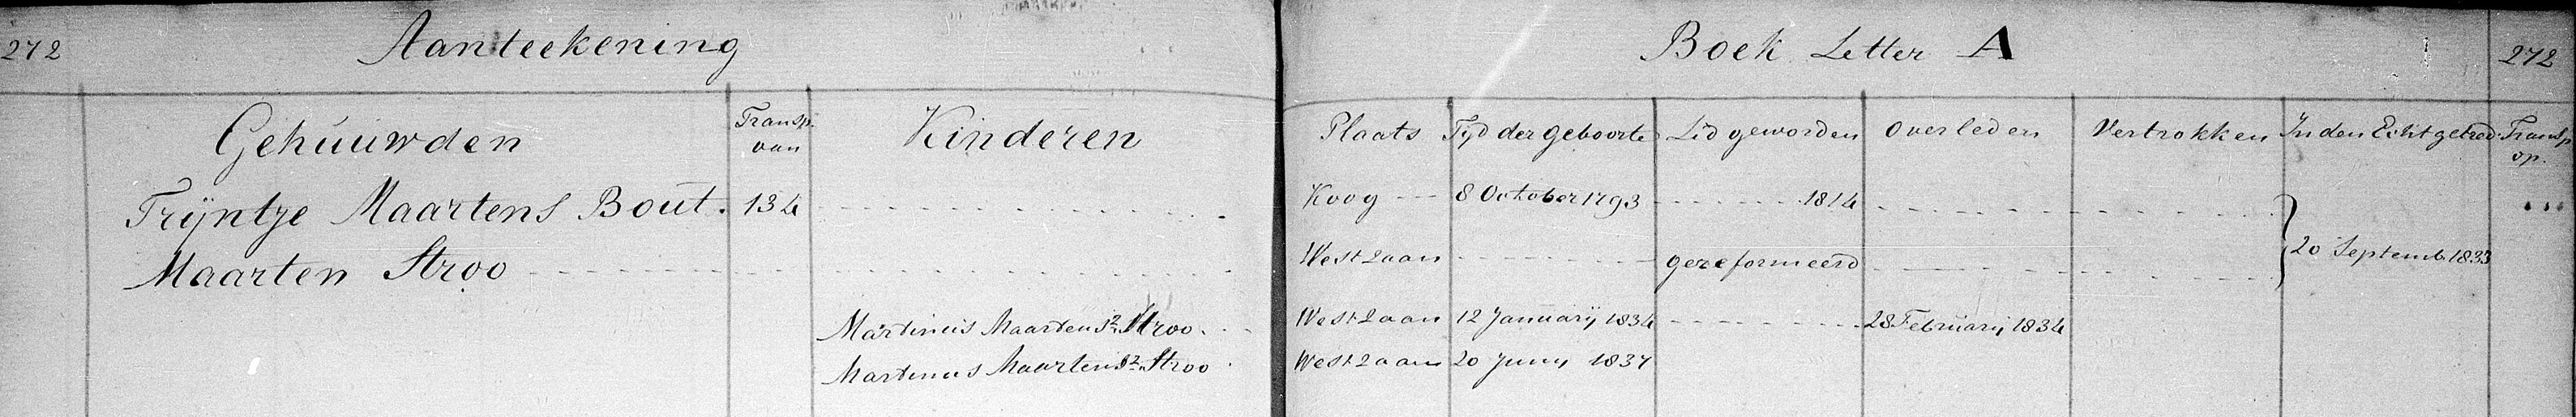 272 Aanteekening Boek Letter A 272
Gehuuwden Transp. van Kinderen Plaats Tyd der geboorte Lid geworden overleden Vertrokken In den Echt getred. Transp op.
Trijntje Maartens Bout. 134 Koog 8 October 1793 1814
Maarten Stroo Westzaan gereformeerd 20 Septemb. 1833
Martinus Maartensz. Stroo. Westzaan 12 Januarij 1834 28 Februarij 1834
Martinus Maartensz. Stroo Westzaan 20 Juny 1837